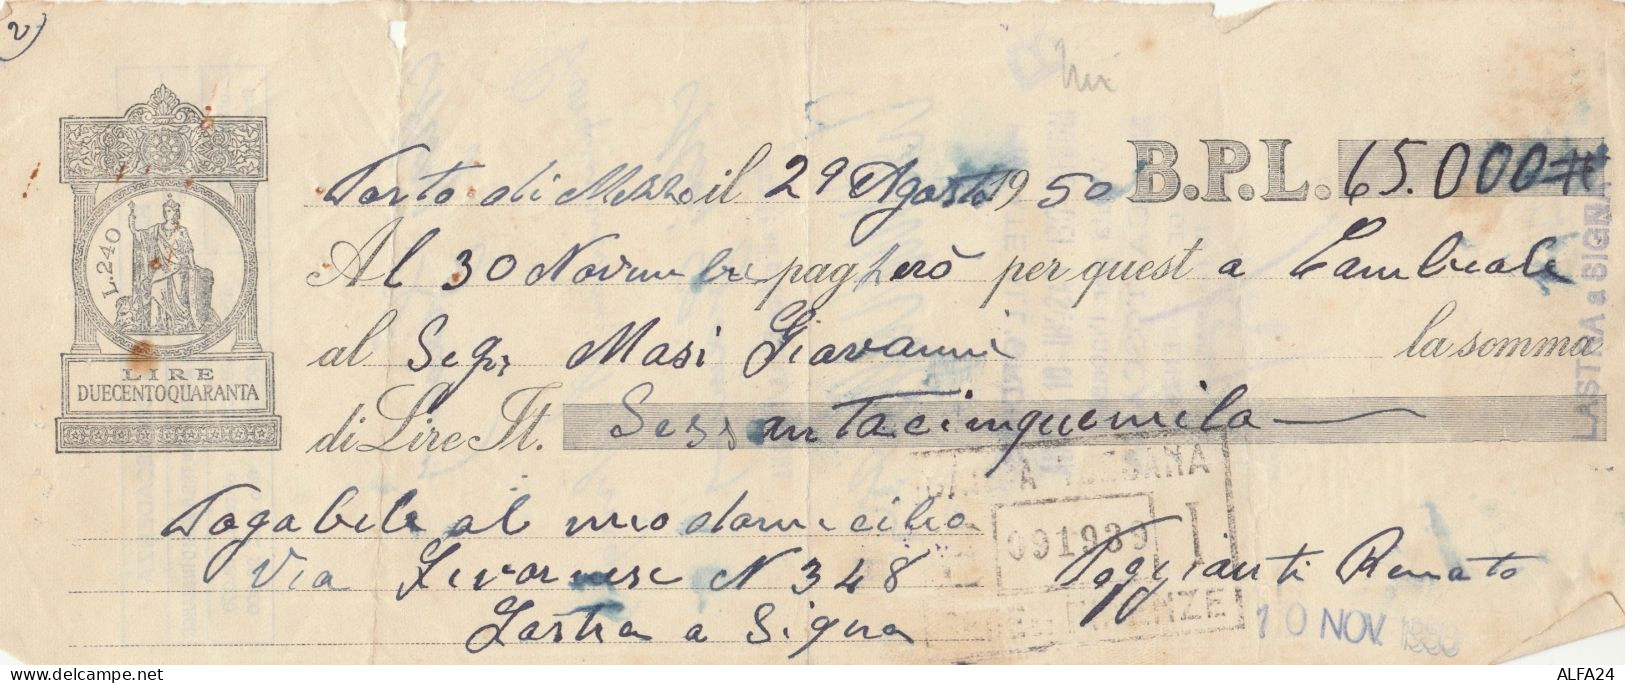 2)
L.240
LIRE
DUECENTOQUARANTA
Porto di Mezzo il 29 Agosto 1950 B.P.L. 65.000#
Al 30 Novembre pagherò per questa Cambiale
al Segr Masi Giovanni la somma
di Lire It. Sessantacinquemila
Pagabile al mio domicilio
Via Livornese N 348
Lastra a Signa
Poggianti Renato
TOSCANA
091989
FIRENZE
10 NOV. 1950
LASTRA a SIGNA
ALFA24